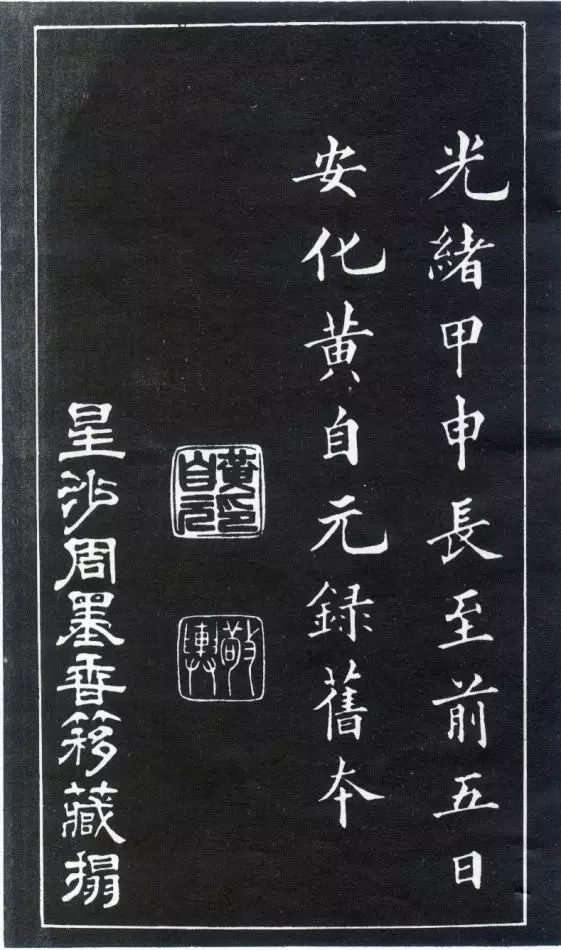 光緒甲申長至前五日
安化黄自元録舊本
黄自元印
敬輿
星沙周墨香簃藏搨